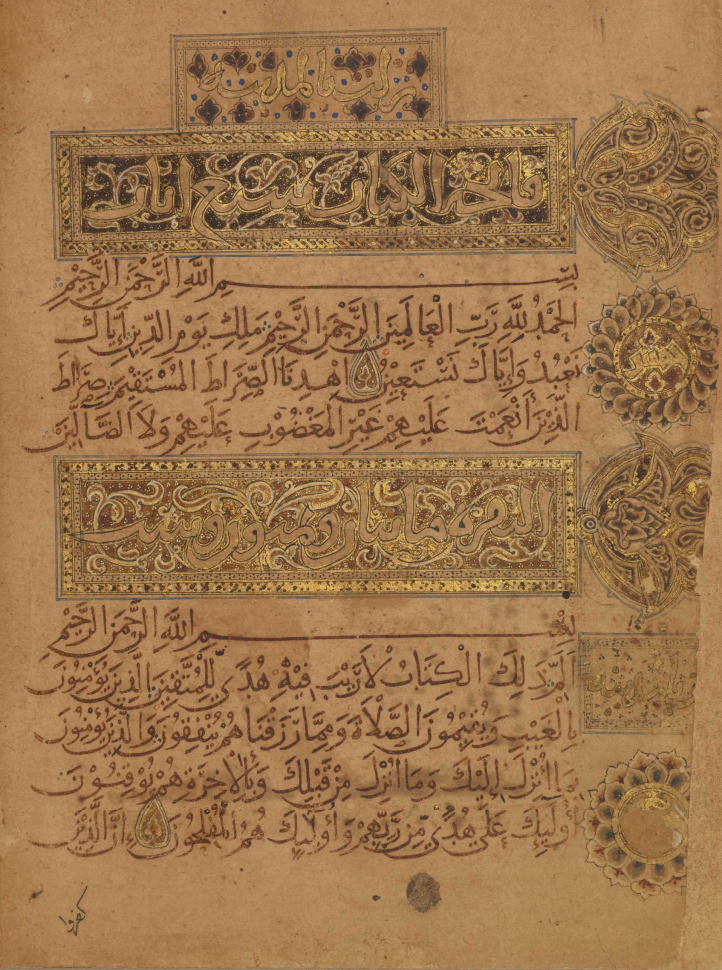 نزلت بالمدينة
فاتحة الكتاب سبع ايات
بِسْمِ اللَّهِ الرَّحْمَنِ الرَّحِيْمِ
الْحَمْدُ لِلَّهِ رَبِّ الْعَالَمِيْنَ الرَّحْمَنِ الرَّحِيْمِ مَلِكِ يَوْمِ الدِّيْنِ إِيَّاكَ
نَعْبُدُ وَإِيَّاكَ نَسْتَعِيْنُ اِهْدِنَا الصِّرَاطَ الْمُسْتَقِيْمَ صِرَاطَ
الَّذِيْنَ أَنْعَمْتَ عَلَيْهِمْ غَيْرِ الْمَغْضُوْبِ عَلَيْهِمْ وَلَا الضَّالِّيْنَ
البقرة مايتان وثمنون وست
بِسْمِ اللَّهِ الرَّحْمَنِ الرَّحِيْمِ
الٓمٓ ذَلِكَ الْكِتَابُ لَا رَيْبَ فِيْهِ هُدًى لِلْمُتَّقِيْنَ الَّذِيْنَ يُؤْمِنُوْنَ
بِالْغَيْبِ وَيُقِيْمُوْنَ الصَّلَاةَ وَمِمَّا رَزَقْنَاهُمْ يُنْفِقُوْنَ وَالَّذِيْنَ يُؤْمِنُوْنَ
بِمَا أُنْزِلَ إِلَيْكَ وَمَا أُنْزِلَ مِنْ قَبْلِكَ وَبِالْآخِرَةِ هُمْ يُوْقِنُوْنَ
أُولَٰئِكَ عَلَى هُدًى مِّنْ رَّبِّهِمْ وَأُولَٰئِكَ هُمُ الْمُفْلِحُوْنَ إِنَّ الَّذِيْنَ
كفروا